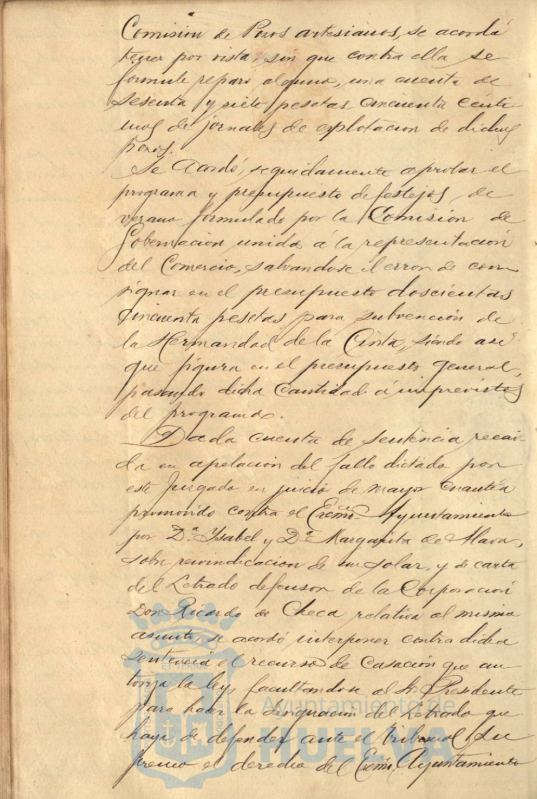 Comision de Pozos artesianos, se acordó
tener por vista, sin que contra ella se
formule reparo alguno, una cuenta de
sesenta y siete pesetas cincuenta centi
mos de jornales de esplotacion de dichos
pozos.
Se acordó, seguidamente aprobar el
programa y presupuesto de festejos de
verano formulado por la Comisión de
Gobernacion unida á la representación
del Comercio, salvandose el error de con
signar en el presupuesto doscientas
cincuenta pesetas para subvención de
la Hermandad de la Cinta, siendo asi
que figura en el presupuesto general,
pasando dicha cantidad á imprevistos
del programa.
Dada cuenta de sentencia recai
da en apelacion del fallo dictado por
este Juzgado en juicio de mayor cuantia
promovido contra el Excmo. Ayuntamiento
por Dª Ysabel y Dª Margarita de Alava,
sobre reivindicacion de un solar, y de carta
del Letrado defensor de la Corporación
Don Ricardo de Checa relativa al mismo
asunto, se acordó interponer contra dicha
sentencia el recurso de casación que au
toriza la ley, facultandose al Sr Presidente
para hacer la designacion del Letrado que
haya de defender ante el Tribunal Su
premo el derecho del Excmo. Ayuntamiento
Ayuntamiento de
HUELVA